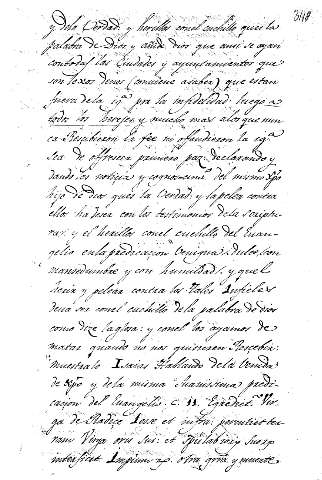 348
y dela Verdad y herillos conel cuchillo que es la
palabra de Dios y añade dios que ansi se ayan
con todas las Ciudades y ayuntamientos que
son lexos de nos (conviene a saber) que estan
fuera dela igª por la infidelidad: luego a
todos los herejes, y mucho mas a los que nun
ca Recibieron la fee ni ofendieron la igª
sea de offrecer primero paz, declarando y
dandoles noticia y cognoscimiº del mismo Xpo
hijo de dios ques la Verdad, y la pelea contra
ellos ha de ser con los testimonios dela scriptu
ra; y el herillos con el cuchillo del Evan
gelio en la predicacion benigna, dulce, con
mansedumbre y con humildad; y quel
herir y pelear contra los tales Infieles
deva ser conel cuchillo de la palabra de dios
como dize la glosa: y conel los ayamos de
matar quando no nos quisieren Rescebir
muestralo Isaias Hablando dela Venida
de Xpo y de la misma suavissima predi
cacion del Evangelio. c. 11. Egredietur Vir
ga de Radice Iesse et infra: percutiet ter
ram Virga oris sui: et spiritu labiorum suorum
interficiet Impium